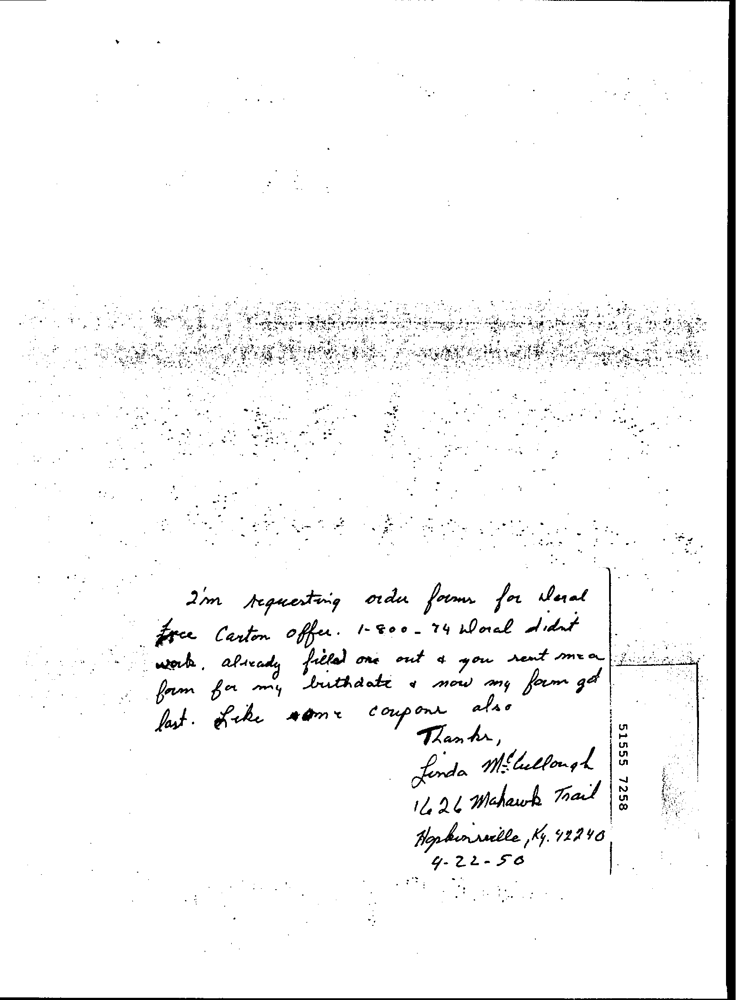 I'm requesting order forms for Doral
free Carton offer. 1-800-74 Doral didnt
work. already filled one out & you sent me a
form for my birthdate & now my form got
lost. Like some coupons also
Thanks,
Linda McCullough
1626 Mohawk Trail
Hopkinsville, Ky. 42240
4-22-50
51555 7258